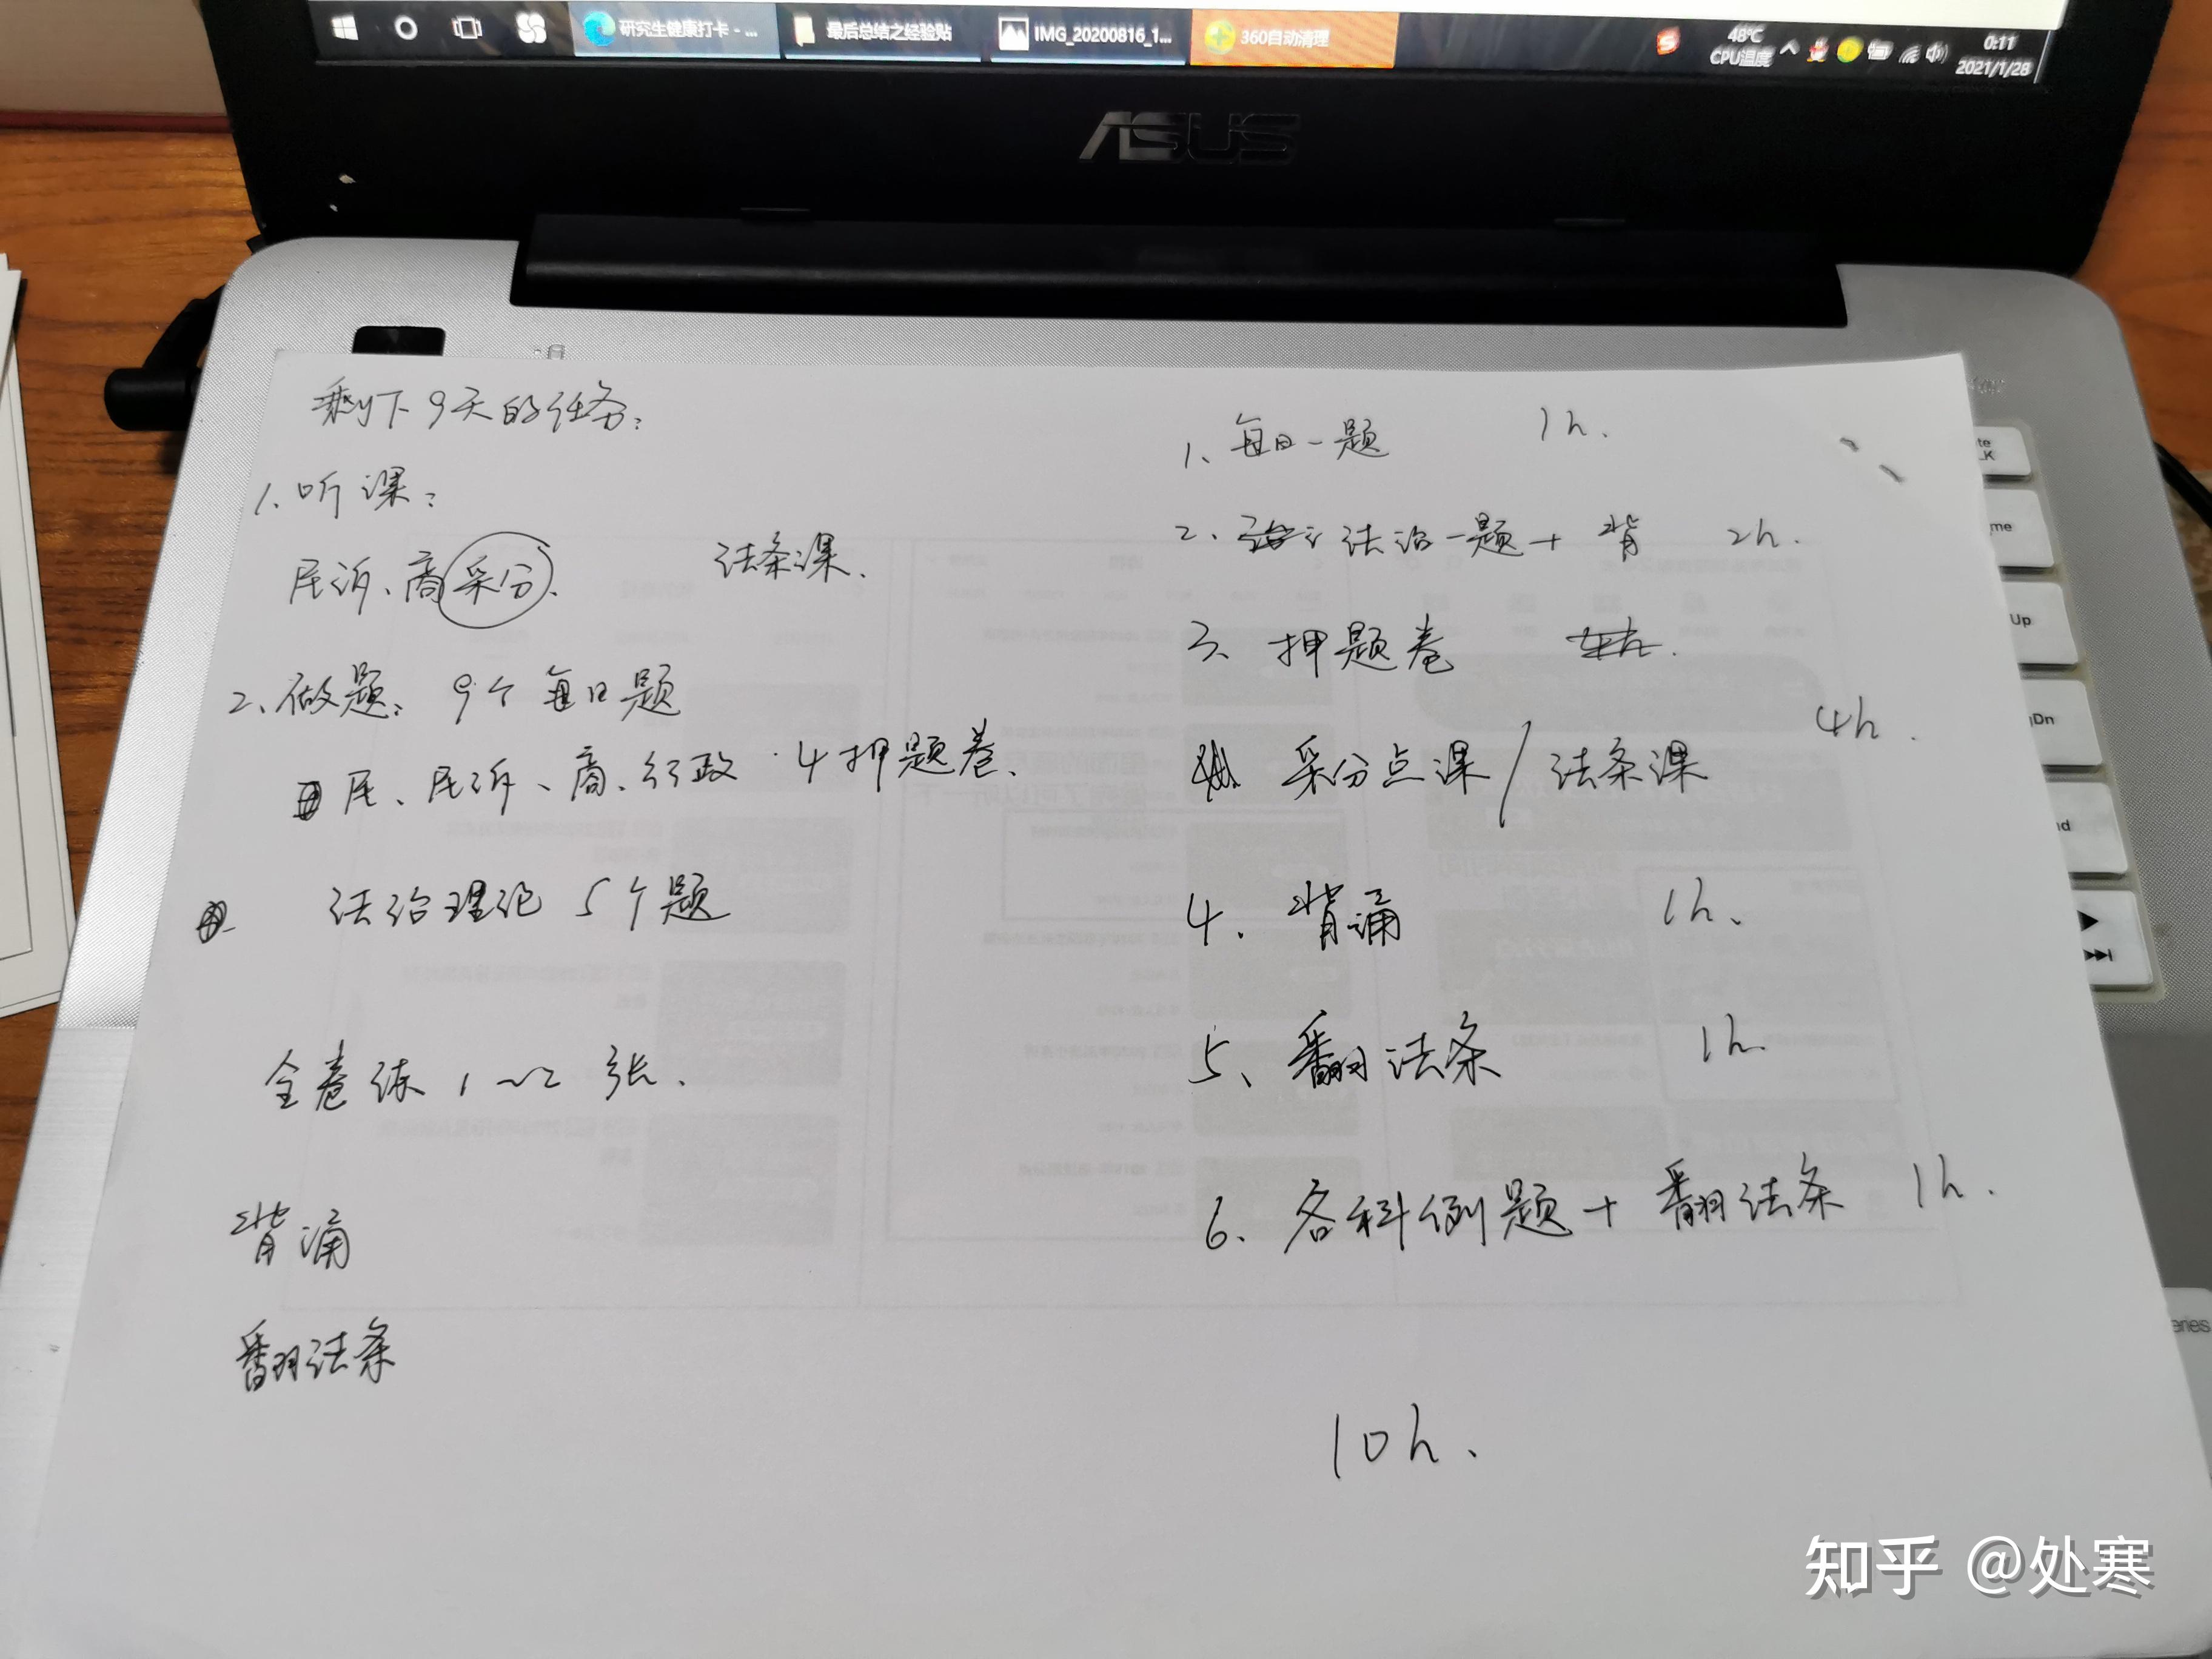 研究生健康打卡 - ...
最后总结之经验贴
IMG_20200816_1...
360自动清理
48℃
CPU温度
0:11
2021/1/28
ASUS
剩下9天的任务:
1、听课:
民诉、商采分、 法条课、
2、做题: 9个每日题
民、民诉、商、行政·4押题卷、
法治理论 5个题
全卷练 1~2 张、
背诵
翻法条
1、每日一题 1h.
2、法治一题+背 2h.
3、押题卷
采分点课/法条课 4h.
4. 背诵 1h.
5、翻法条 1h.
6、各科例题+翻法条 1h.
10h.
me
Up
Dn
知乎 @处寒